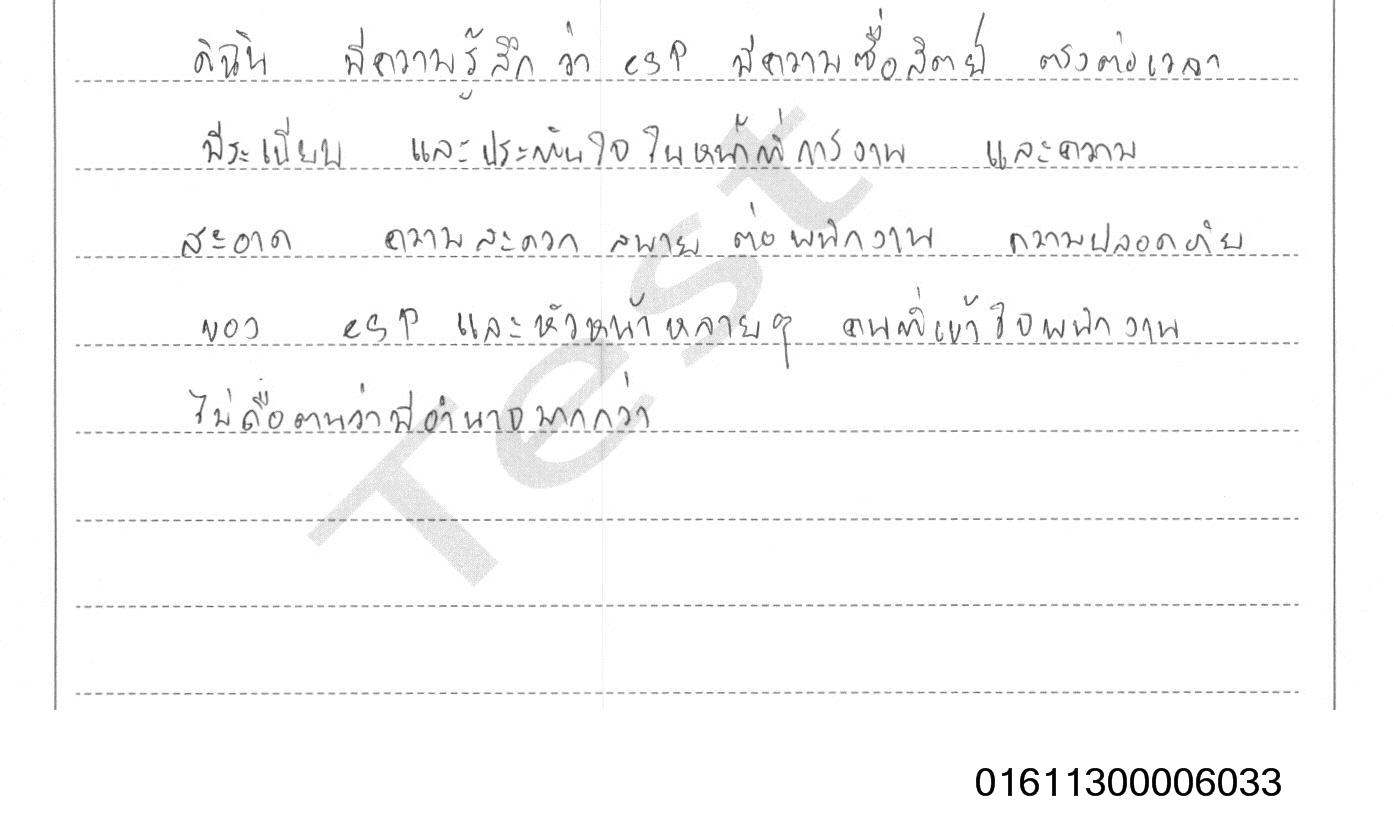 ดิฉัน มีความรู้สึกว่า CSP มีความซื่อสัตย์ ตรงต่อเวลา
มีระเบียบ และประทับใจในหน้าที่การงาน และความ
สะอาด ความสะดวก สบาย ต่อพนักงาน ความปลอดภัย
ของ CSP และหัวหน้าหลายๆ คนที่เข้าใจพนักงาน
ไม่ถือตนว่ามีอำนาจมากกว่า
Test
01611300006033